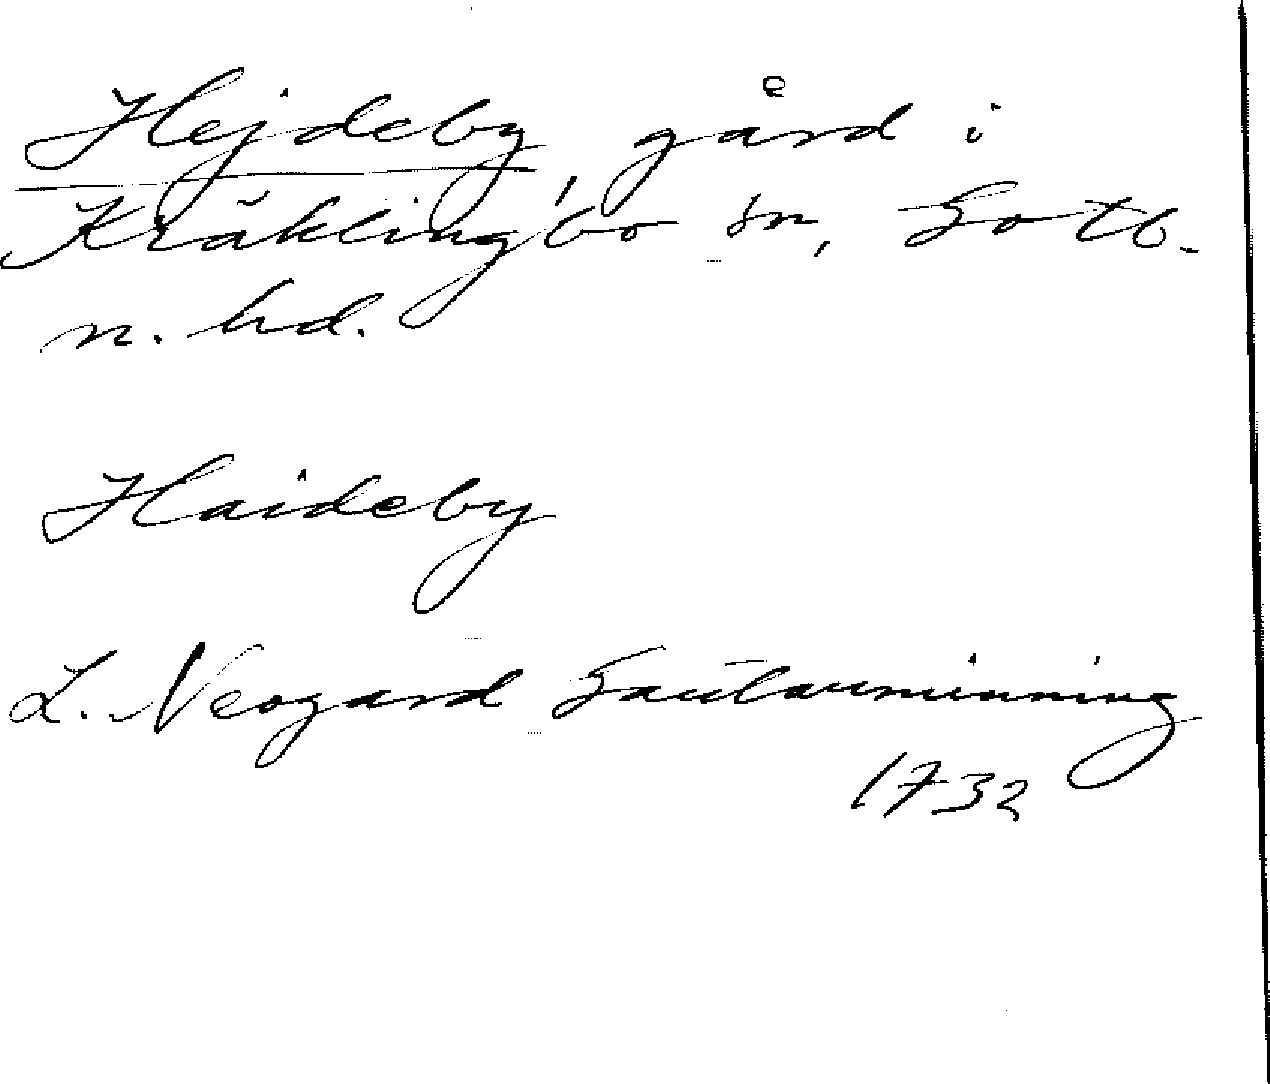 Hejdeby, gård i
Kräklingbo sn, Gotl.
n. hd.
Haideby
L. Neogard Gautauminning
1732